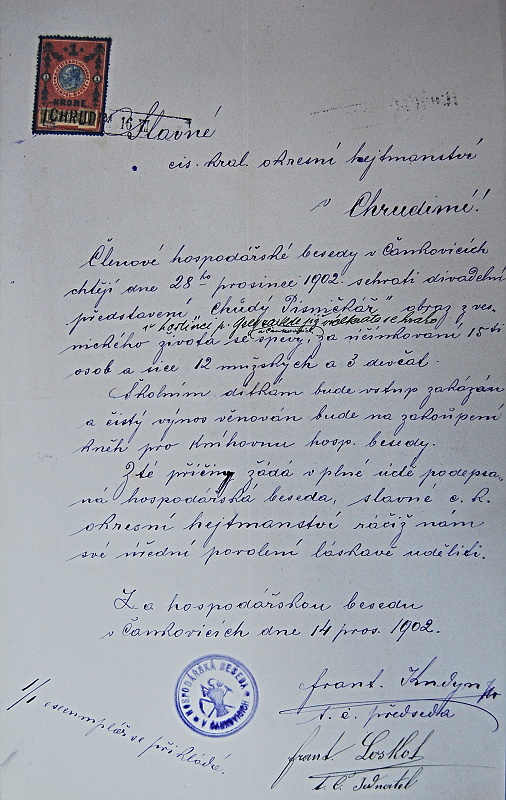 1
KRONE
CHRUDI
16 XII
Slavné
cis. král. okresní hejtmanství
v Chrudimě!
Členové hospodářské besedy v Čankovicích
chtějí dne 28ho prosince 1902 sehrati divadelní
představení „Chudý Písničkář" obraz z ves-
v hostinci p.
nického života se zpěvy, za účinkování 15ti
osob a sice 12 mužských a 3 děvčat.
Školním dítkám bude vstup zakázán
a čistý výnos věnován bude na zakoupení
kněh pro knihovnu hosp. besedy.
Z té příčiny žádá v plné úctě podepsa„
ná hospodářská beseda, slavné c. k.
okresní hejtmanství ráčiž nám
své úřední povolení láskavě uděliti.
Za hospodářskou besedu
v Čankovicích dne 14 pros. 1902.
HOSPODÁŘSKÁ BESEDA
V ČANKOVICÍCH
frant. Kudyn
t. č. předseda
frant. Loskot
t. č. Jednatel
1/1 exemplář se přikládá.